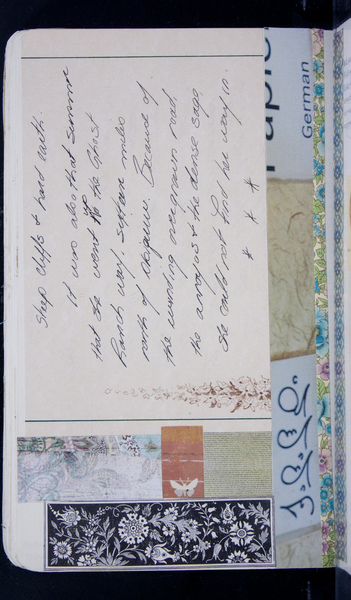 Steep cliffs & hard earth.
It was also that summer
that she went up the Ghost
Ranch way. Sixteen miles
north of Abiquiu. Because of
the winding overgrown road,
the arroyos & the dense sage
she could not find her way in.
* * *
German